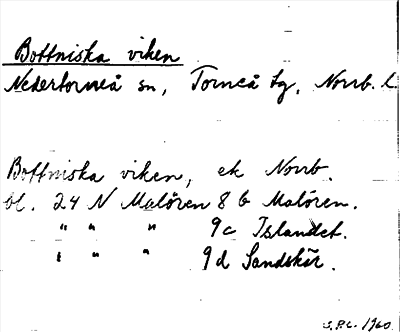 Bottniska viken
Nedertorneå sn, Torneå tg, Norrb. l.
Bottniska viken, ek Norrb.
bl. 24 N Malören 8 b Malören.
" " " 9 c Islandet.
" " " 9 d Sandskär.
S.P.L. 1960